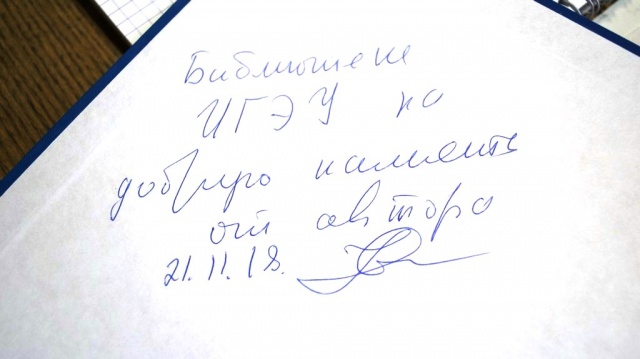 Библиотеке
ИГЭУ на
добрую память
от автора
21.11.18.